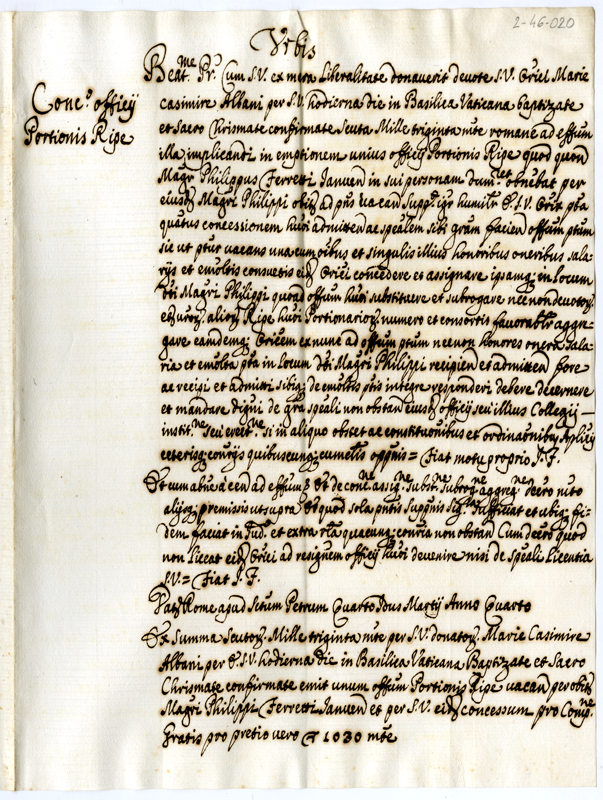 2-46-020
Urbis
Conc.º officij
Portionis Ripe
Beat.me Pr. Cum S.V. ex mera liberalitate donaverit devote S.V. Orici Marie
Casimire Albani per S.V. hodierna die in Basilica Vaticana baptizate
et Sacro Chrismate confirmate scuta Mille triginta mte romane ad effum
illa implicandi in emptionem unius officij Portionis Ripe quod quon
Magr Philippus Ferretti Januen in sui personam dum obnebat per
eiusd Magri Philippi obit ad pns vacan Supp.t igr humilr S.V. Orix pta
quatus concessionem huiõi admitten ac spealem sibi gram facien offum ptum
sic ut ptur vacans una cum oibus et singulis illius honoribus oneribus sala-
rijs et emoltis consuetis eid Orici concedere et assignare ipsamq; in locum
dti Magri Philippi quoad offum huiõi substituere et subrogare necnon devotor
et alior Ripe huiõi Portionarior numero et consortio favorabilr aggre-
gare eandemq; Oricem ex nunc ad offum ptum necnon honores onera sala-
ria et emolta pta in locum dti Magri Philippi recipien et admitten fore
ac recipi et admitti sibiq; de emoltis ptis integre responderi debere decernere
et mandare digni de gra speali non obstan eiusd officij seu illius Collegij
instit.ne seu erect.ne si in aliquo obstet ac constitutionibus et ordinationibus Aplicis
ceterisq; contrijs quibuscunq; cum clis oppnis = Fiat motu proprio J. F.
Et cum absne a cen ad effum Et de conc.ne assig.ne subst.ne subrog.ne aggreg.ne decro mto
alijsq; premissis ut supra Et quod sola pntis suppnis sig.ra sufficiat et ubiq; fi-
dem faciat in Jud.o et extra rla quacunq; contria non obstan Cum decro quod
non liceat eid Orici ad resignem officij huiõi devenire nisi de speali licentia
S.V. = Fiat J. F.
Dat Rome apud Sctum Petrum Quarto Idus Martij Anno Quarto
Ex summa scutor Mille triginta mte per S.V. donator Marie Casimire
Albani per S.V. hodierna die in Basilica Vaticana Baptizate et Sacro
Chrismate confirmate emit unum offum Portionis Ripe vacan per obit
Magri Philippi Ferretti Januen et per S.V. eid concessum pro Comp.ne
Gratis pro pretio vero 1030 mte